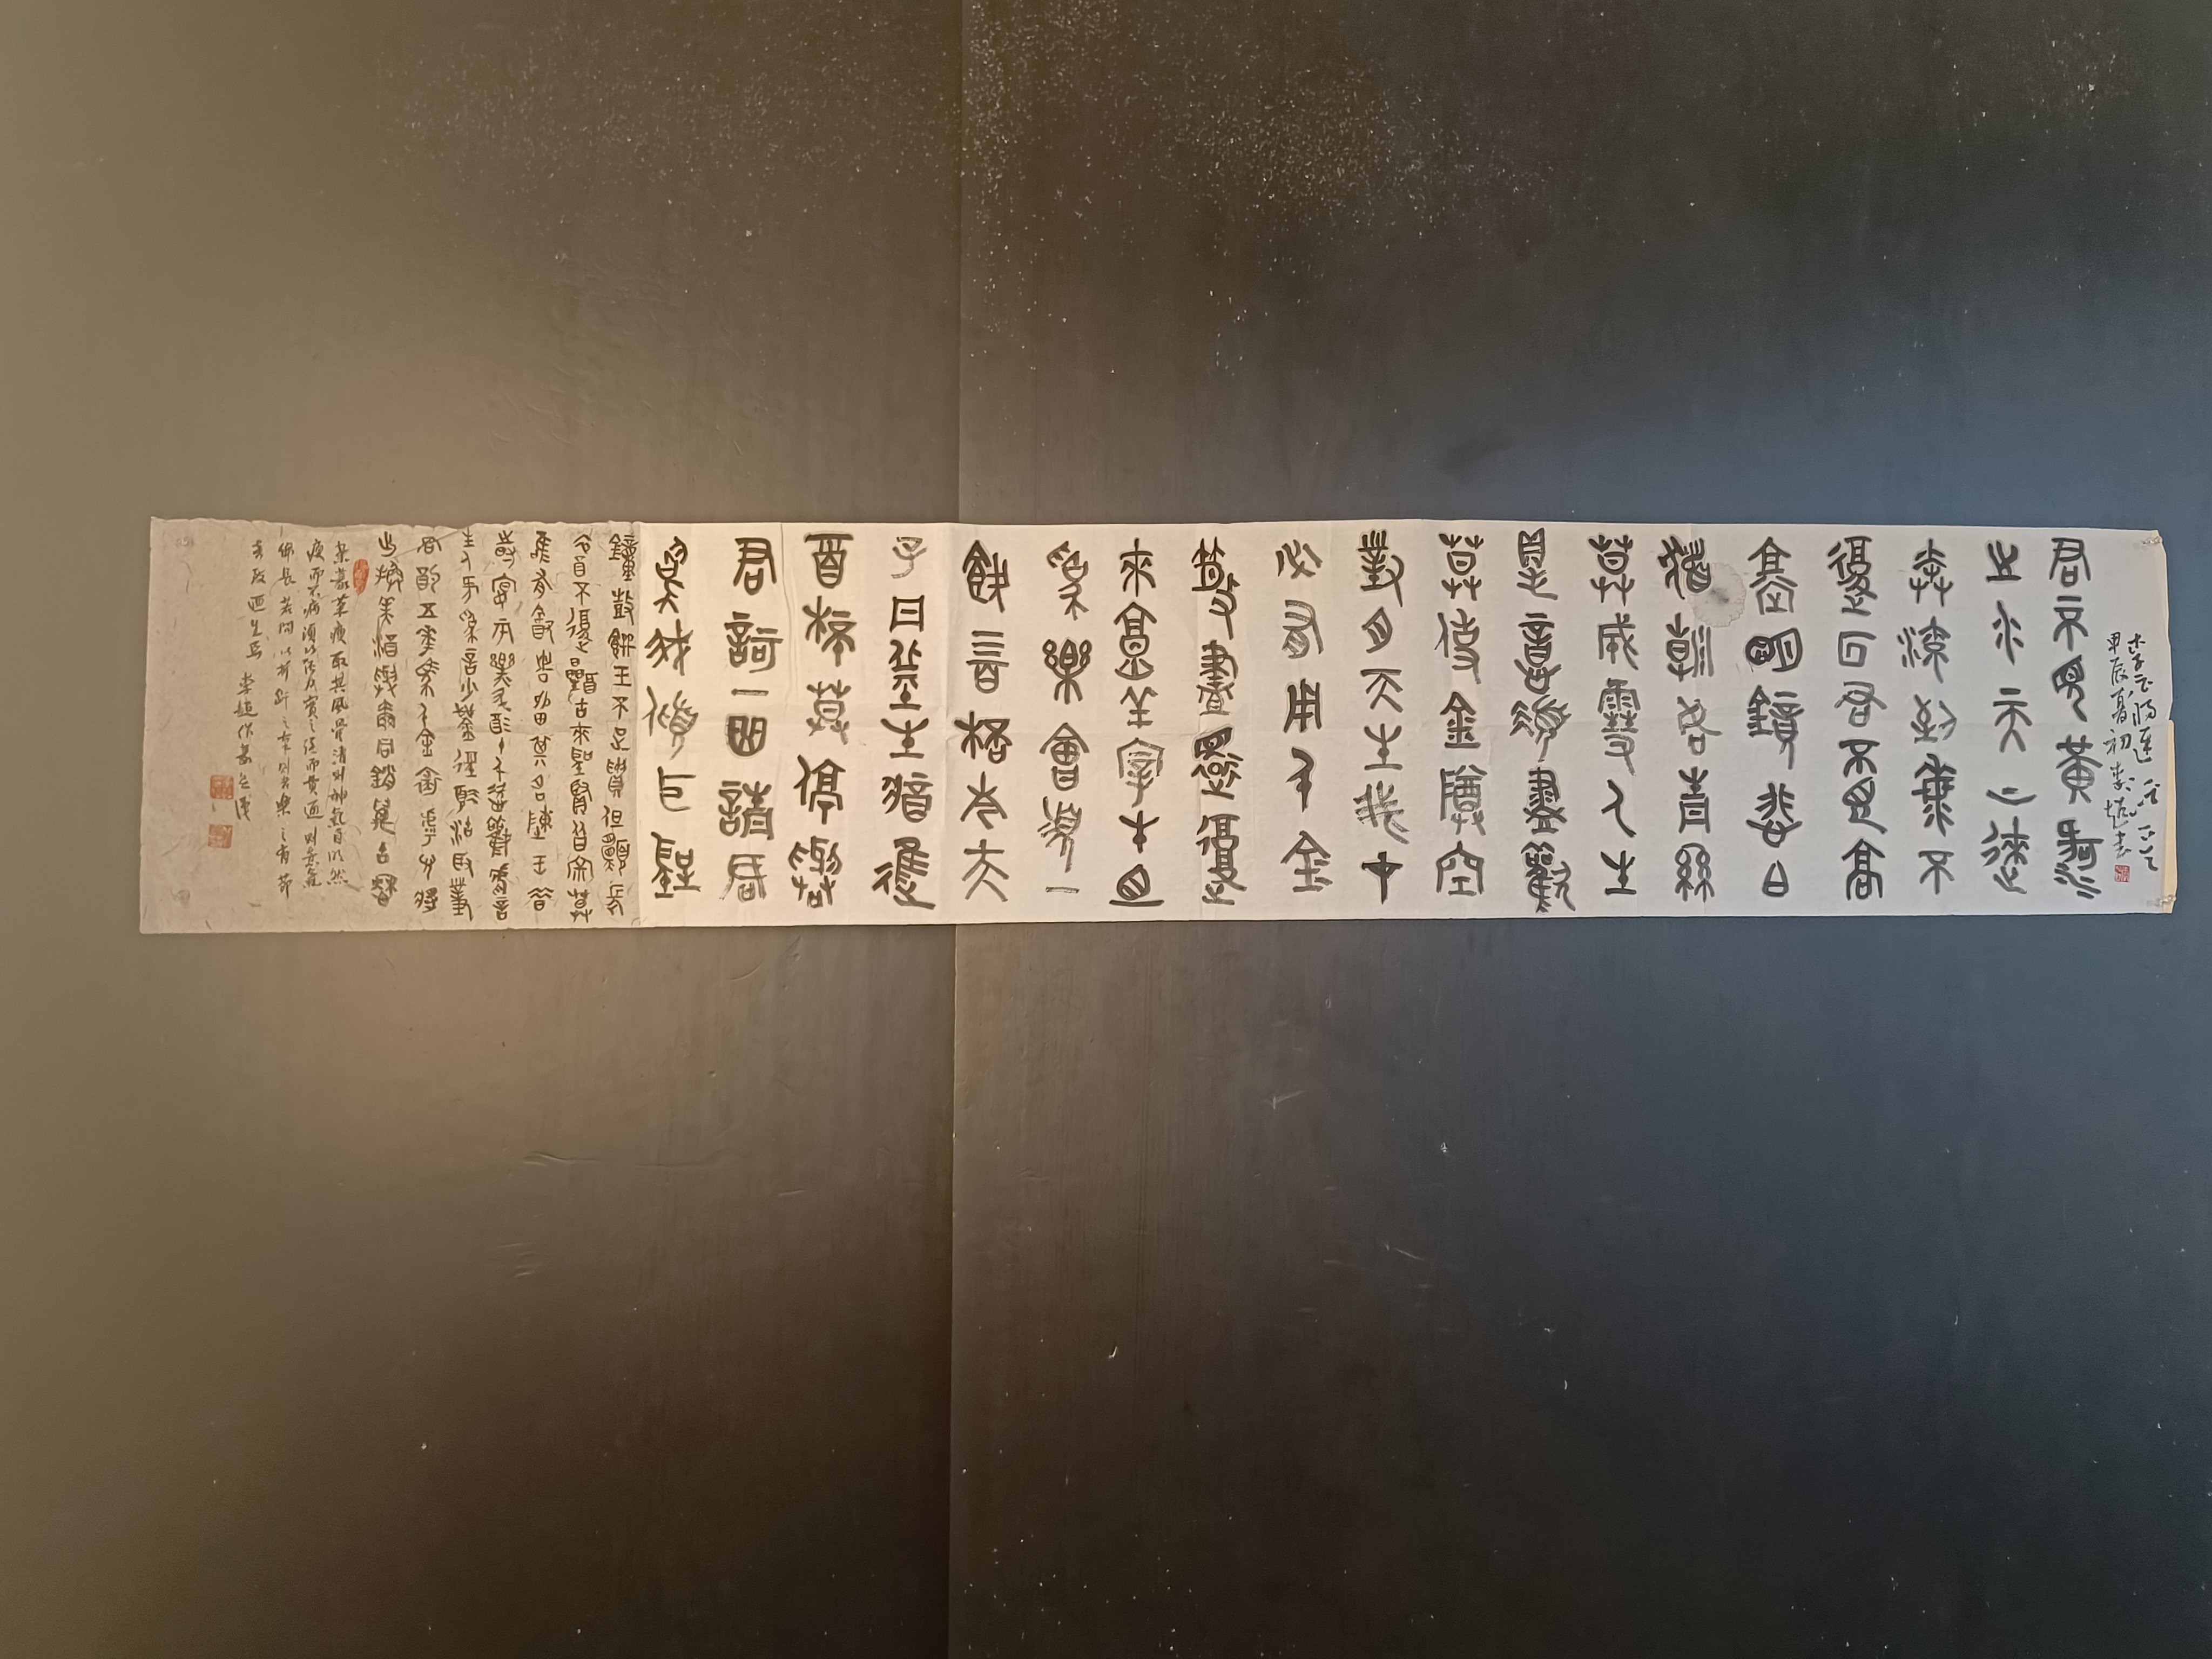 甲辰夏初李超書
君不見黃河
之水天上來
奔流到海不
復回君不見高
堂明鏡悲白
髮朝如青絲
莫成雪人生
得意須盡歡
莫使金樽空
對月天生我才
必有用千金
散盡還復
來烹羊宰牛且
為樂會須一
飲三百杯岑夫
子丹丘生將進
酒杯莫停與
君歌一曲請君
為我傾耳聽
鐘鼓饌玉不足貴但願長
醉不復醒古來聖賢皆寂莫
惟有飲者留其名陳王昔
時宴平樂斗酒十千恣讙謔
主人何為言少錢徑須沽取對
君酌五花馬千金裘呼兒將
出換美酒與爾同銷萬古愁
瘦取其風骨清則神氣自以然
瘦而不病須以